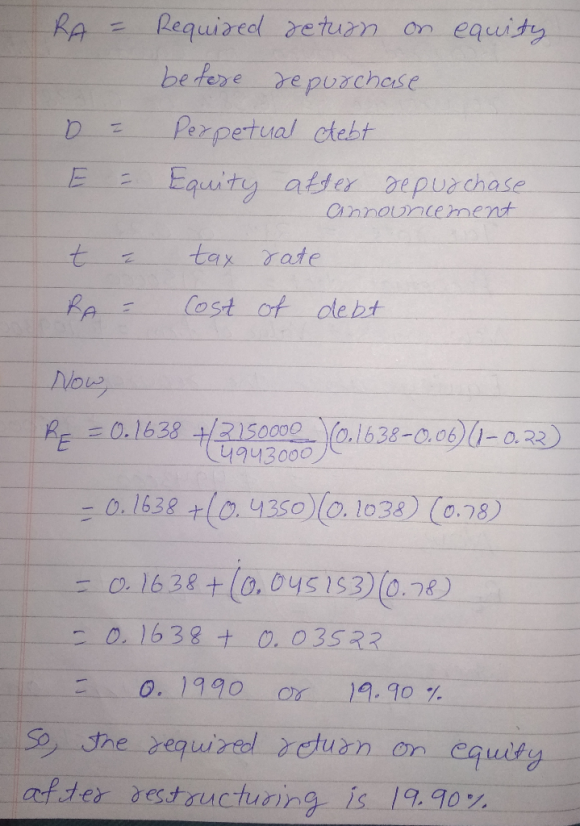 RA = Required return on equity
before repurchase
D = Perpetual debt
E = Equity after repurchase
announcement
t = tax rate
RA = Cost of debt
Now,
RE = 0.1638 + (2150000/4943000)(0.1638-0.06)(1-0.22)
= 0.1638 + (0.4350)(0.1038) (0.78)
= 0.1638 + (0.045153)(0.78)
= 0.1638 + 0.03522
= 0.1990 or 19.90%
So, the required return on equity
after restructuring is 19.90%.